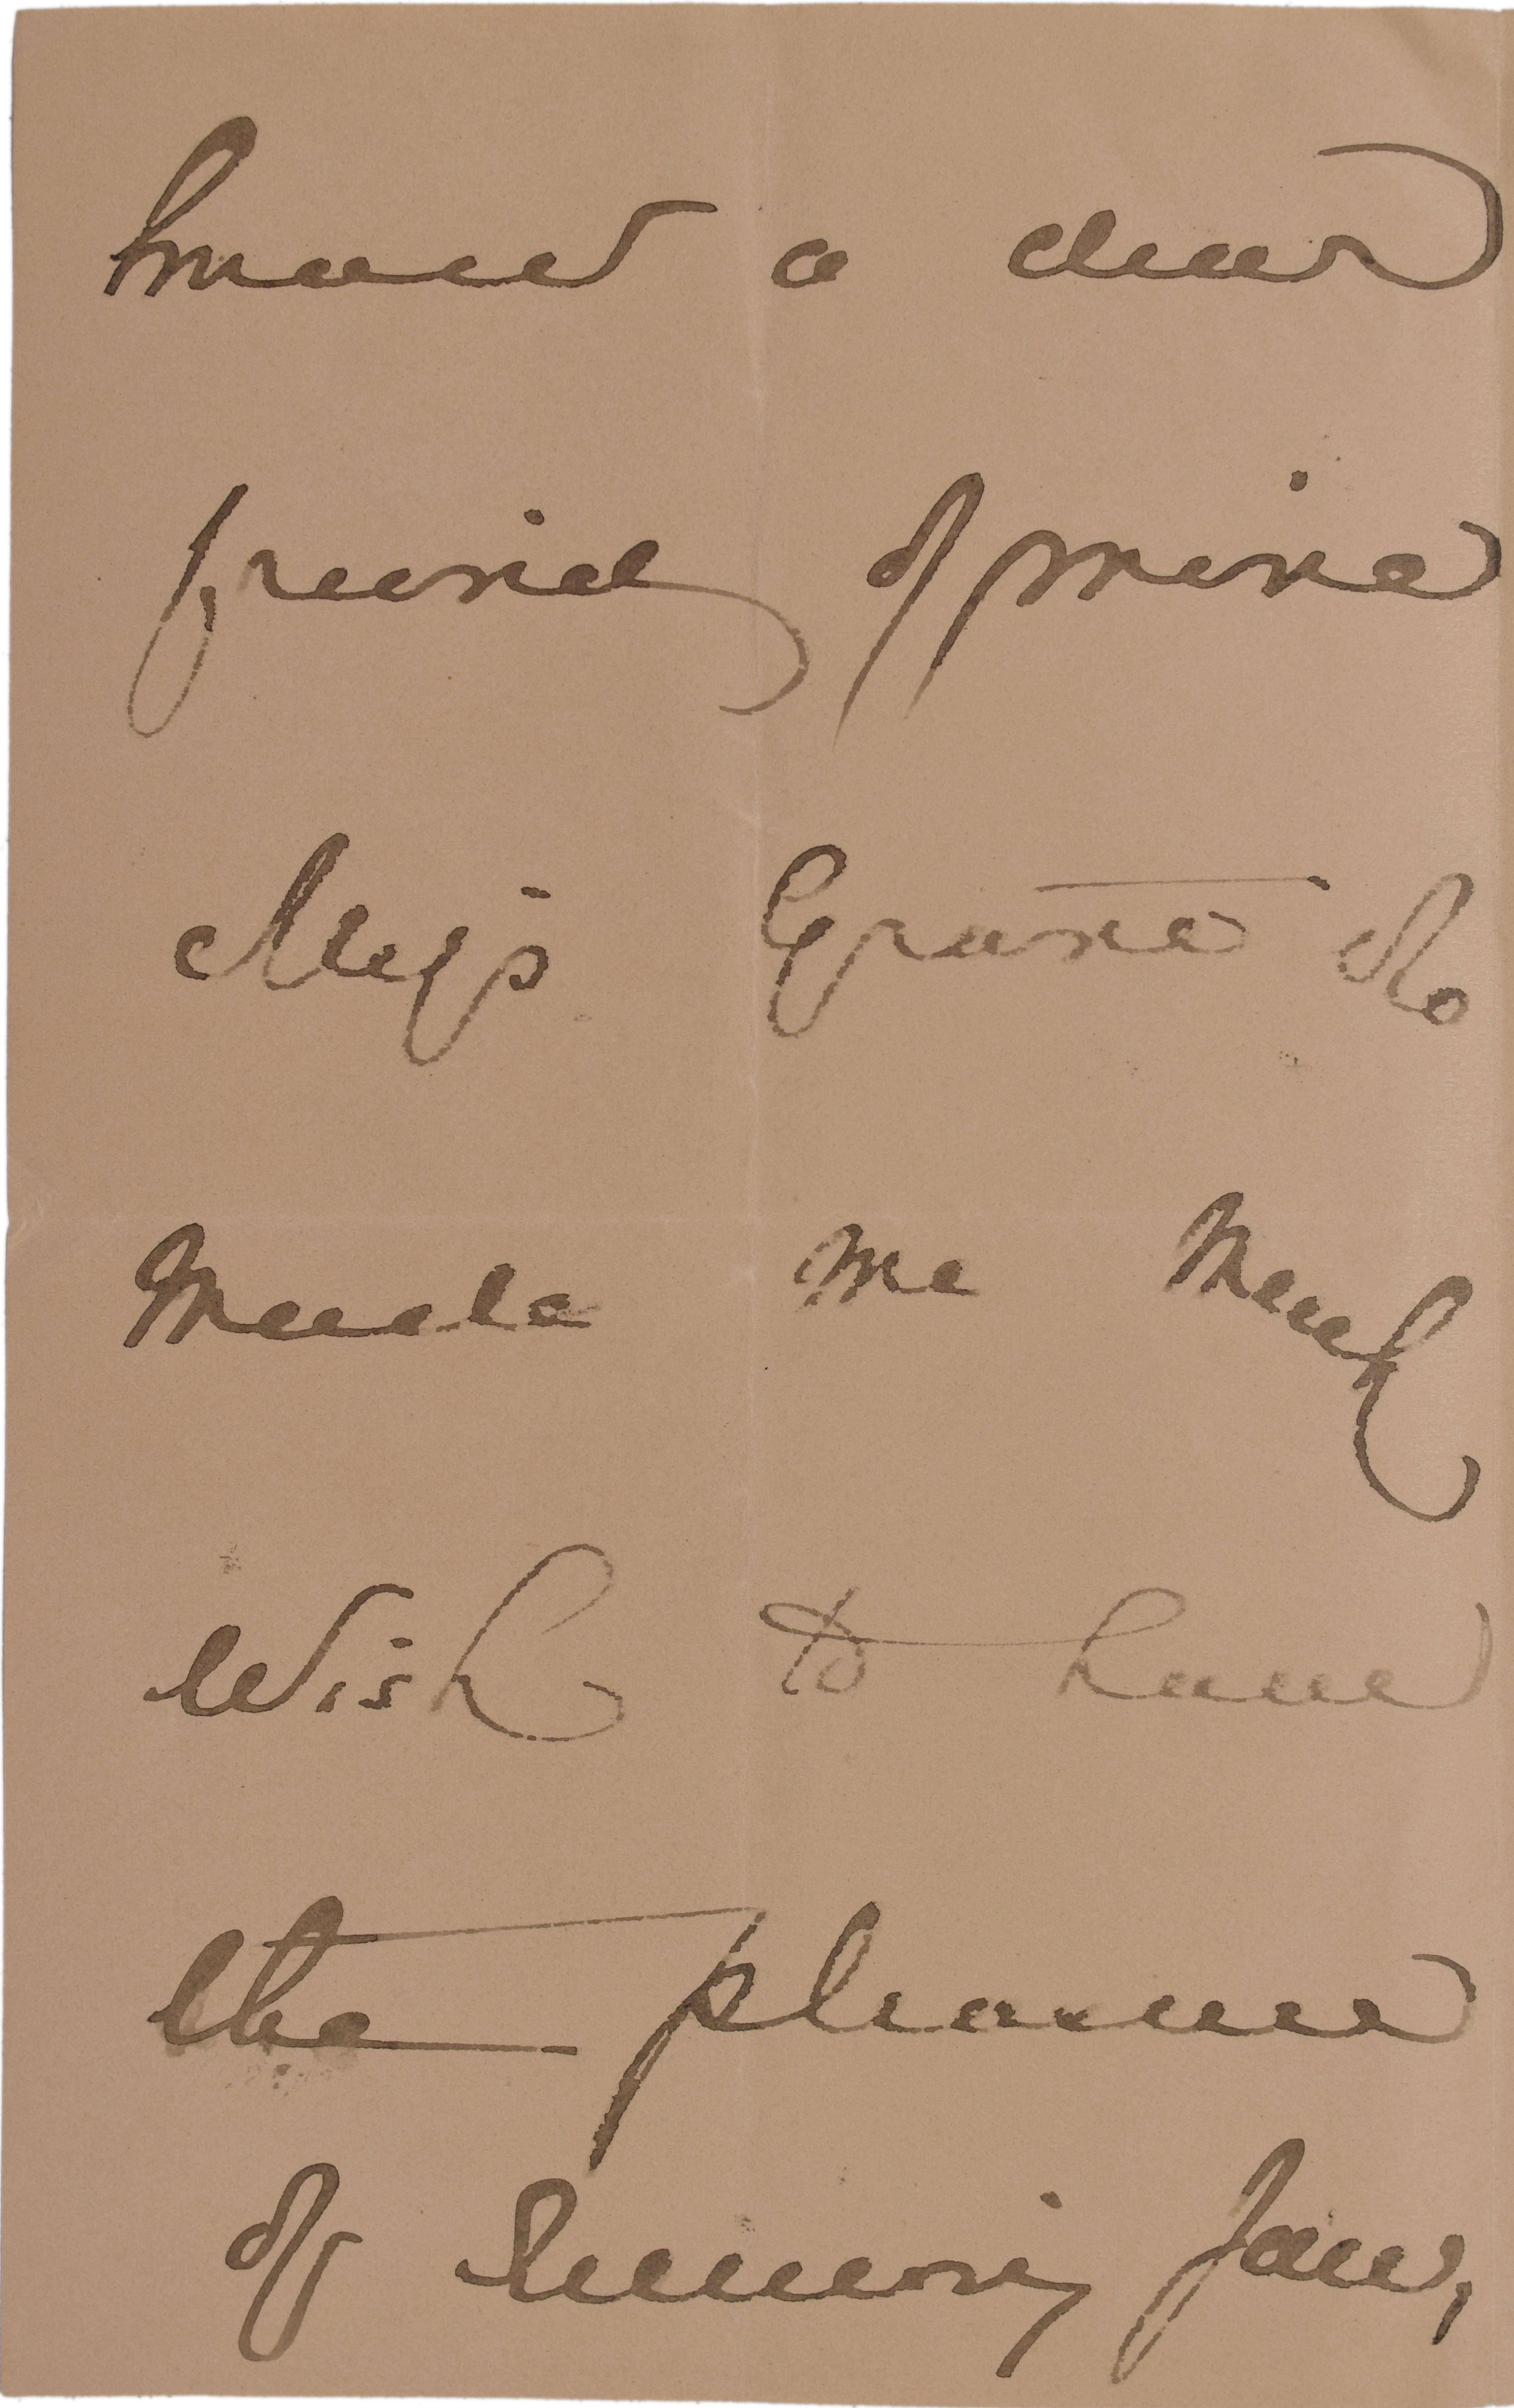 a dear
friend of mine
Miss Grant
made me much
wish to have
the pleasure
of knowing you,